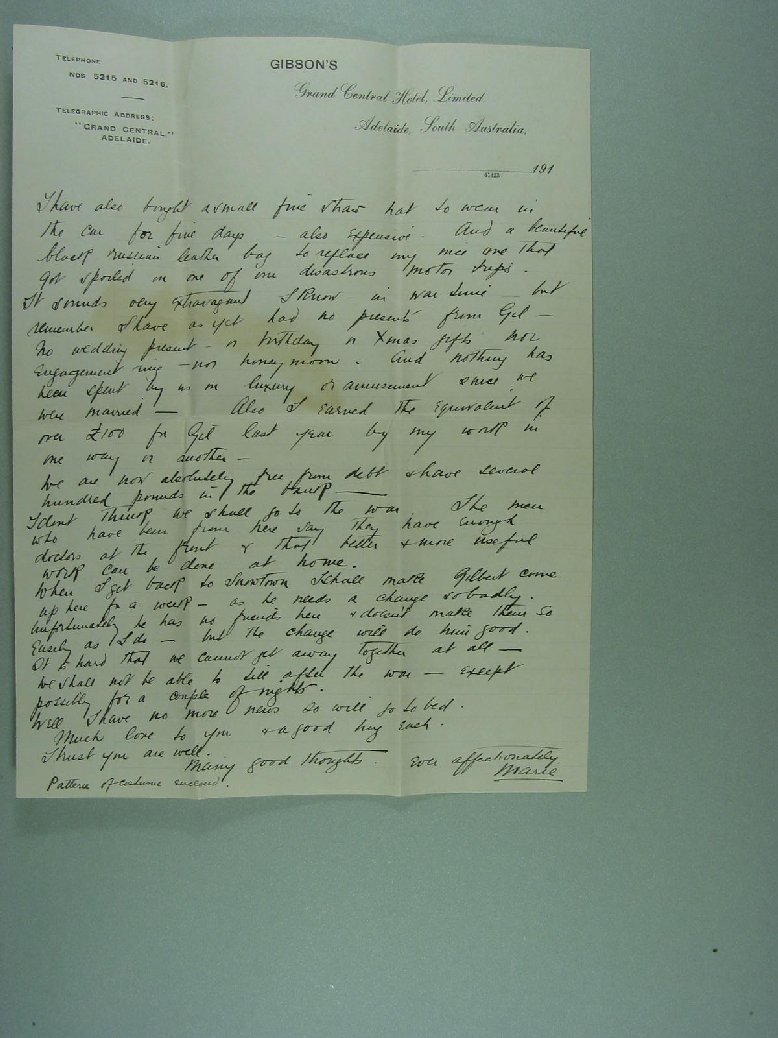 TELEPHONE
NOS 5215 AND 5216.
TELEGRAPHIC ADDRESS:
"GRAND CENTRAL"
ADELAIDE.
GIBSON'S
Grand Central Hotel, Limited
Adelaide, South Australia,
191
I have also bought a small fine straw hat to wear in
the car for fine days – also expensive. And a beautiful
black russian leather bag to replace my nice one that
got spoiled in one of our disastrous motor trips.
It sounds very extravagant I know in war time – but
remember I have as yet had no presents from Gil –
no wedding present – or birthday or Xmas gifts nor
engagement ring – nor honeymoon. And nothing has
been spent by us on luxury or amusement since we
were married — Also I earned the equivalent of
over £100 for Gil last year by my work in
one way or another –
We are now absolutely free from debt & have several
hundred pounds in the bank —
I dont think we shall go to the war. The men
who have been from here say they have enough
doctors at the front & that better & more useful
work can be done at home.
When I get back to Snowtown I shall make Gilbert come
up here for a week – as he needs a change so badly.
Unfortunately he has no friends here & doesn't make them so
easily as I do – but the change will do him good.
It is hard that we cannot get away together at all —
We shall not be able to till after the war – except
possibly for a couple of nights.
Well I have no more news so will go to bed.
Much love to you & a good hug each.
I trust you are well.
Many good thoughts. Ever affectionately
Marie
Pattern of costume enclosed.